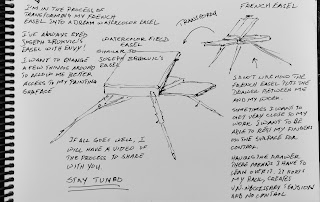 I'M IN THE PROCESS OF
TRANSFORMING MY FRENCH
EASEL INTO A DREAM WATERCOLOR EASEL
I'VE ALWAYS EYED
JOSEPH ZBUKVIC'S
EASEL WITH ENVY!
I WANT TO CHANGE
A FEW THINGS AROUND
TO ALLOW ME BETTER
ACCESS TO MY PAINTING
SURFACE
WATERCOLOR FIELD
EASEL
SIMILAR TO
JOSEPH ZBUKVIC'S
EASEL
TRANSFORM
FRENCH EASEL
IF ALL GOES WELL, I
WILL HAVE A VIDEO OF
THE PROCESS TO SHARE
WITH YOU.
STAY TUNED
I DON'T LIKE HOW THE
FRENCH EASEL PUTS THE
DRAWER BETWEEN ME
AND MY WORK.
SOMETIMES I WANT TO
GET VERY CLOSE TO MY
WORK. I WANT TO BE
ABLE TO REST MY FINGERS
ON THE SURFACE FOR
CONTROL.
HAVING THE DRAWER
THERE MEANS I HAVE TO
LEAN OVER IT. IT HURTS
MY BACK, CREATES
UNNECESSARY TENSION
AND NO CONTROL